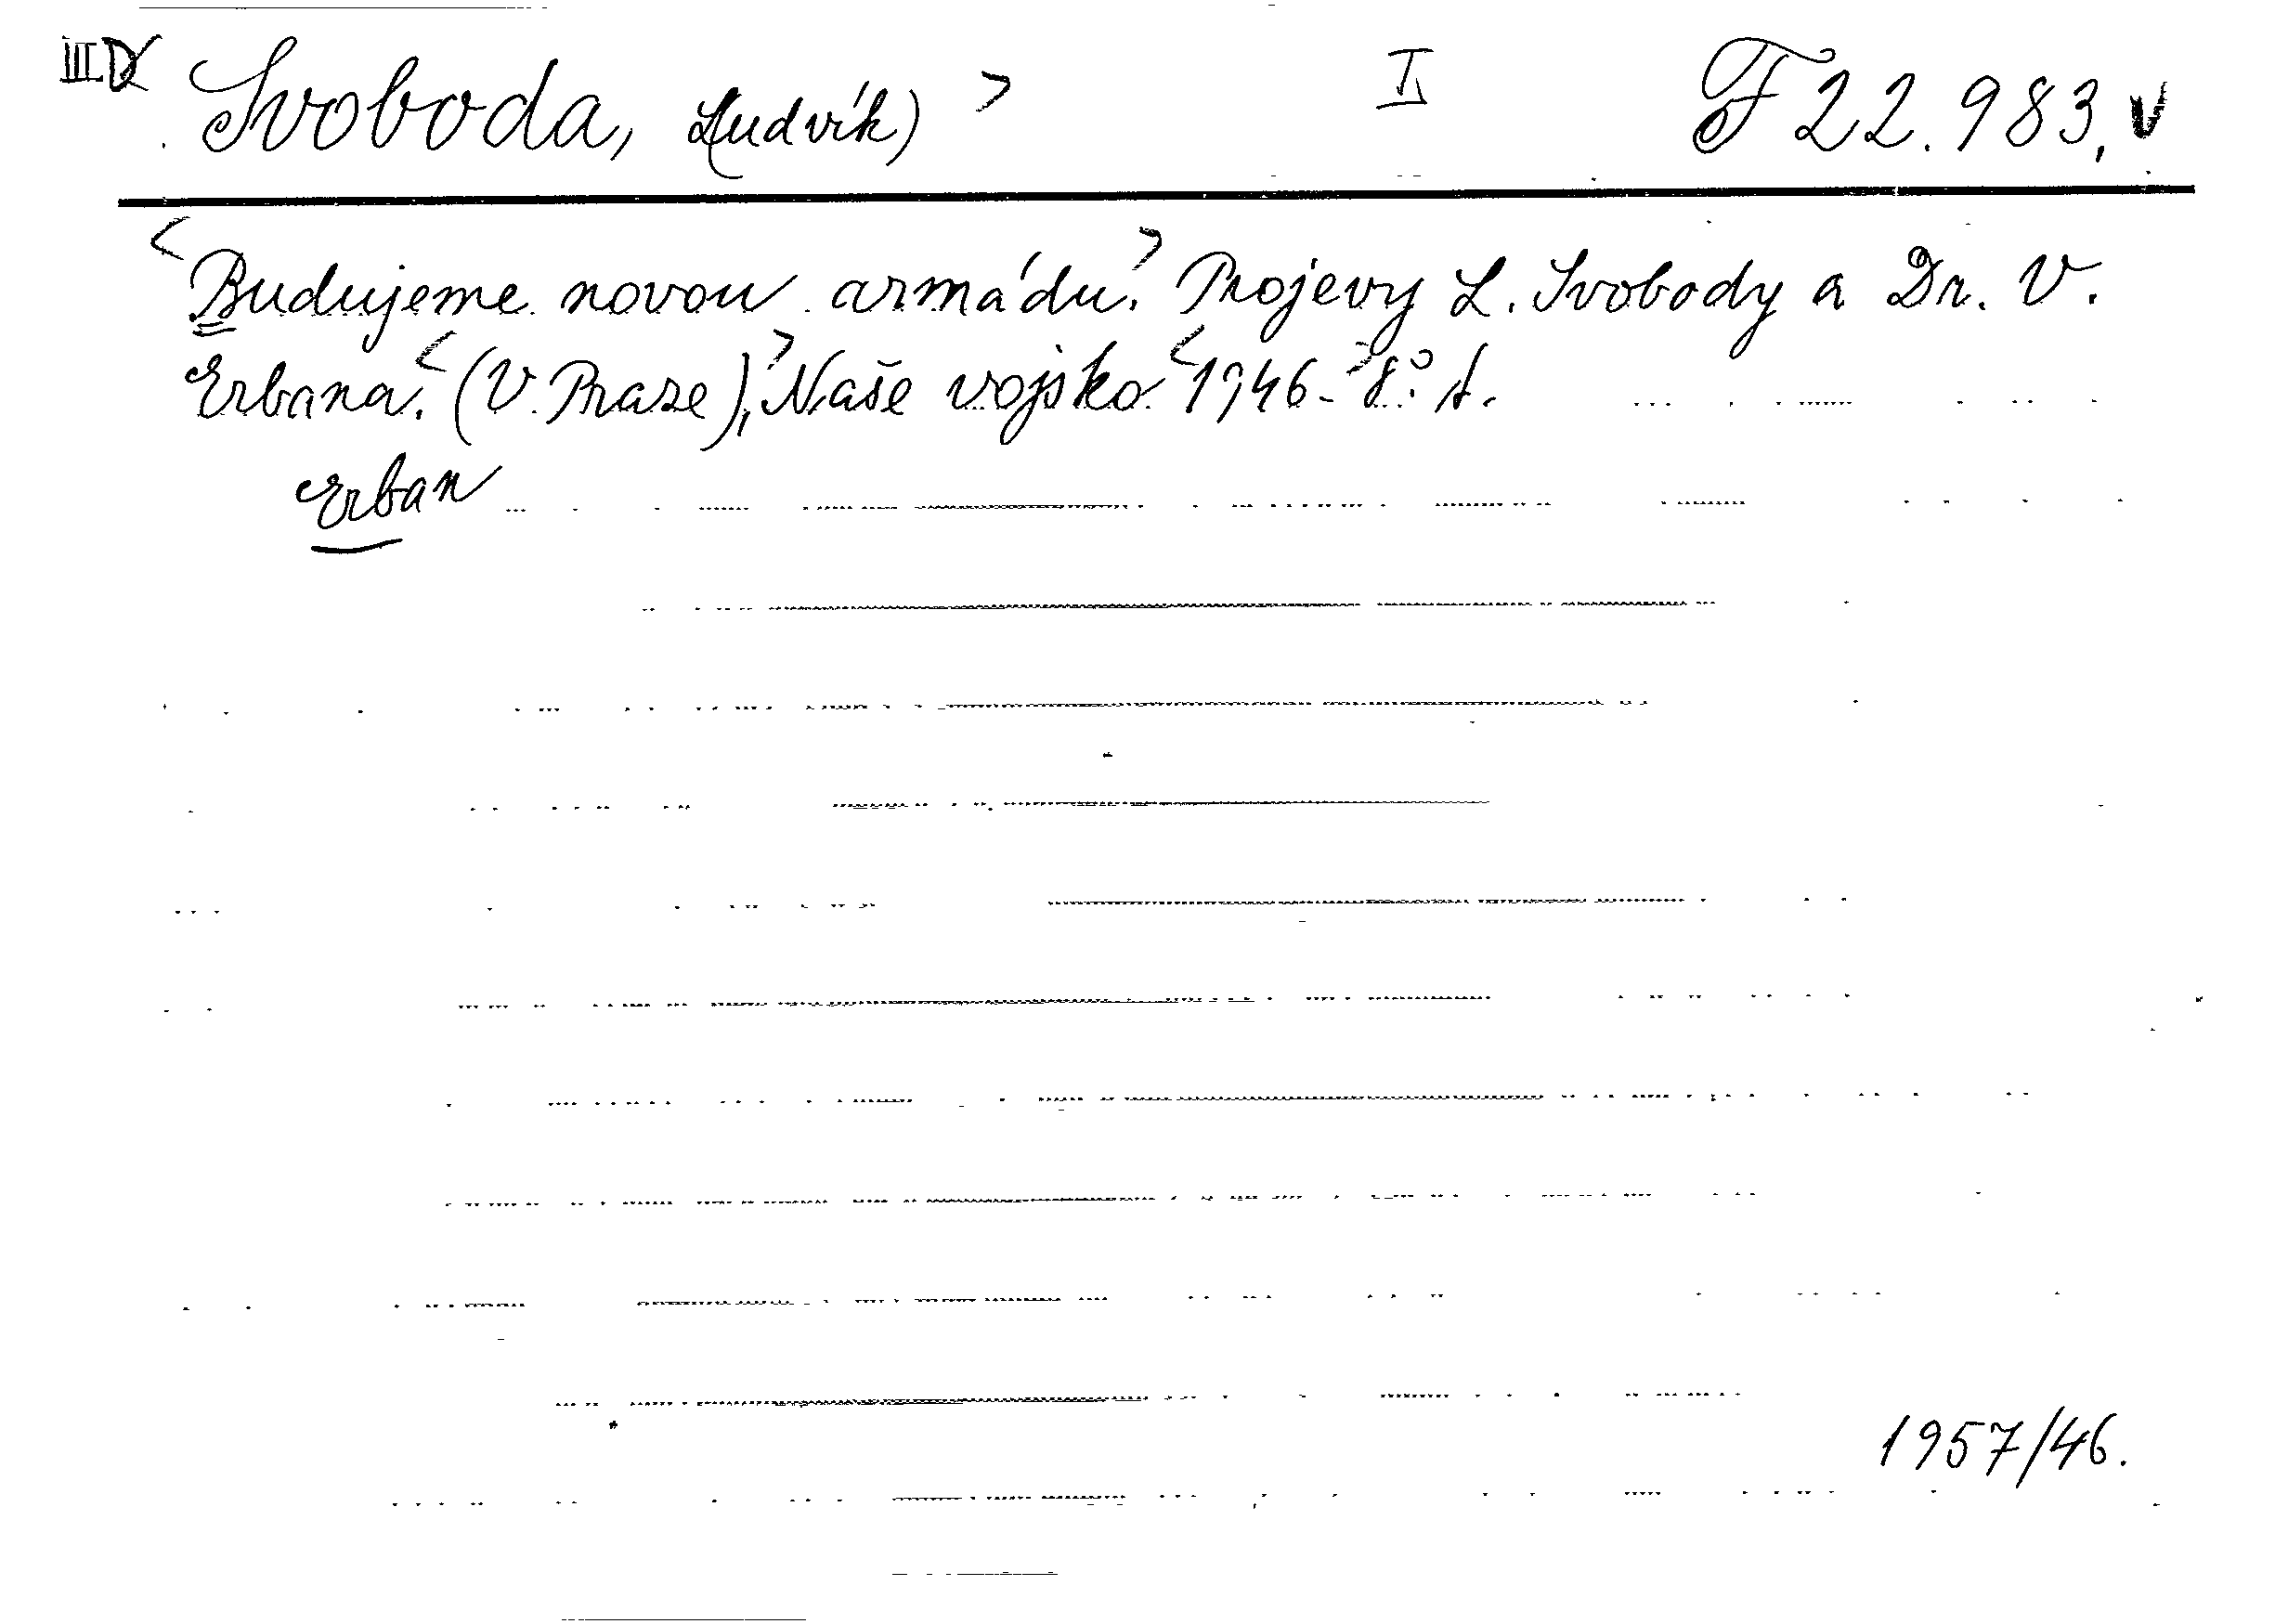 III D Svoboda, (Ludvík) > I F 22.983, v
<Budujeme novou armádu.> Projevy L. Svobody a Dr. V.
Erbana. <(V Praze),> Naše vojsko <1946.> 8°. s.
Erban
1957/46.